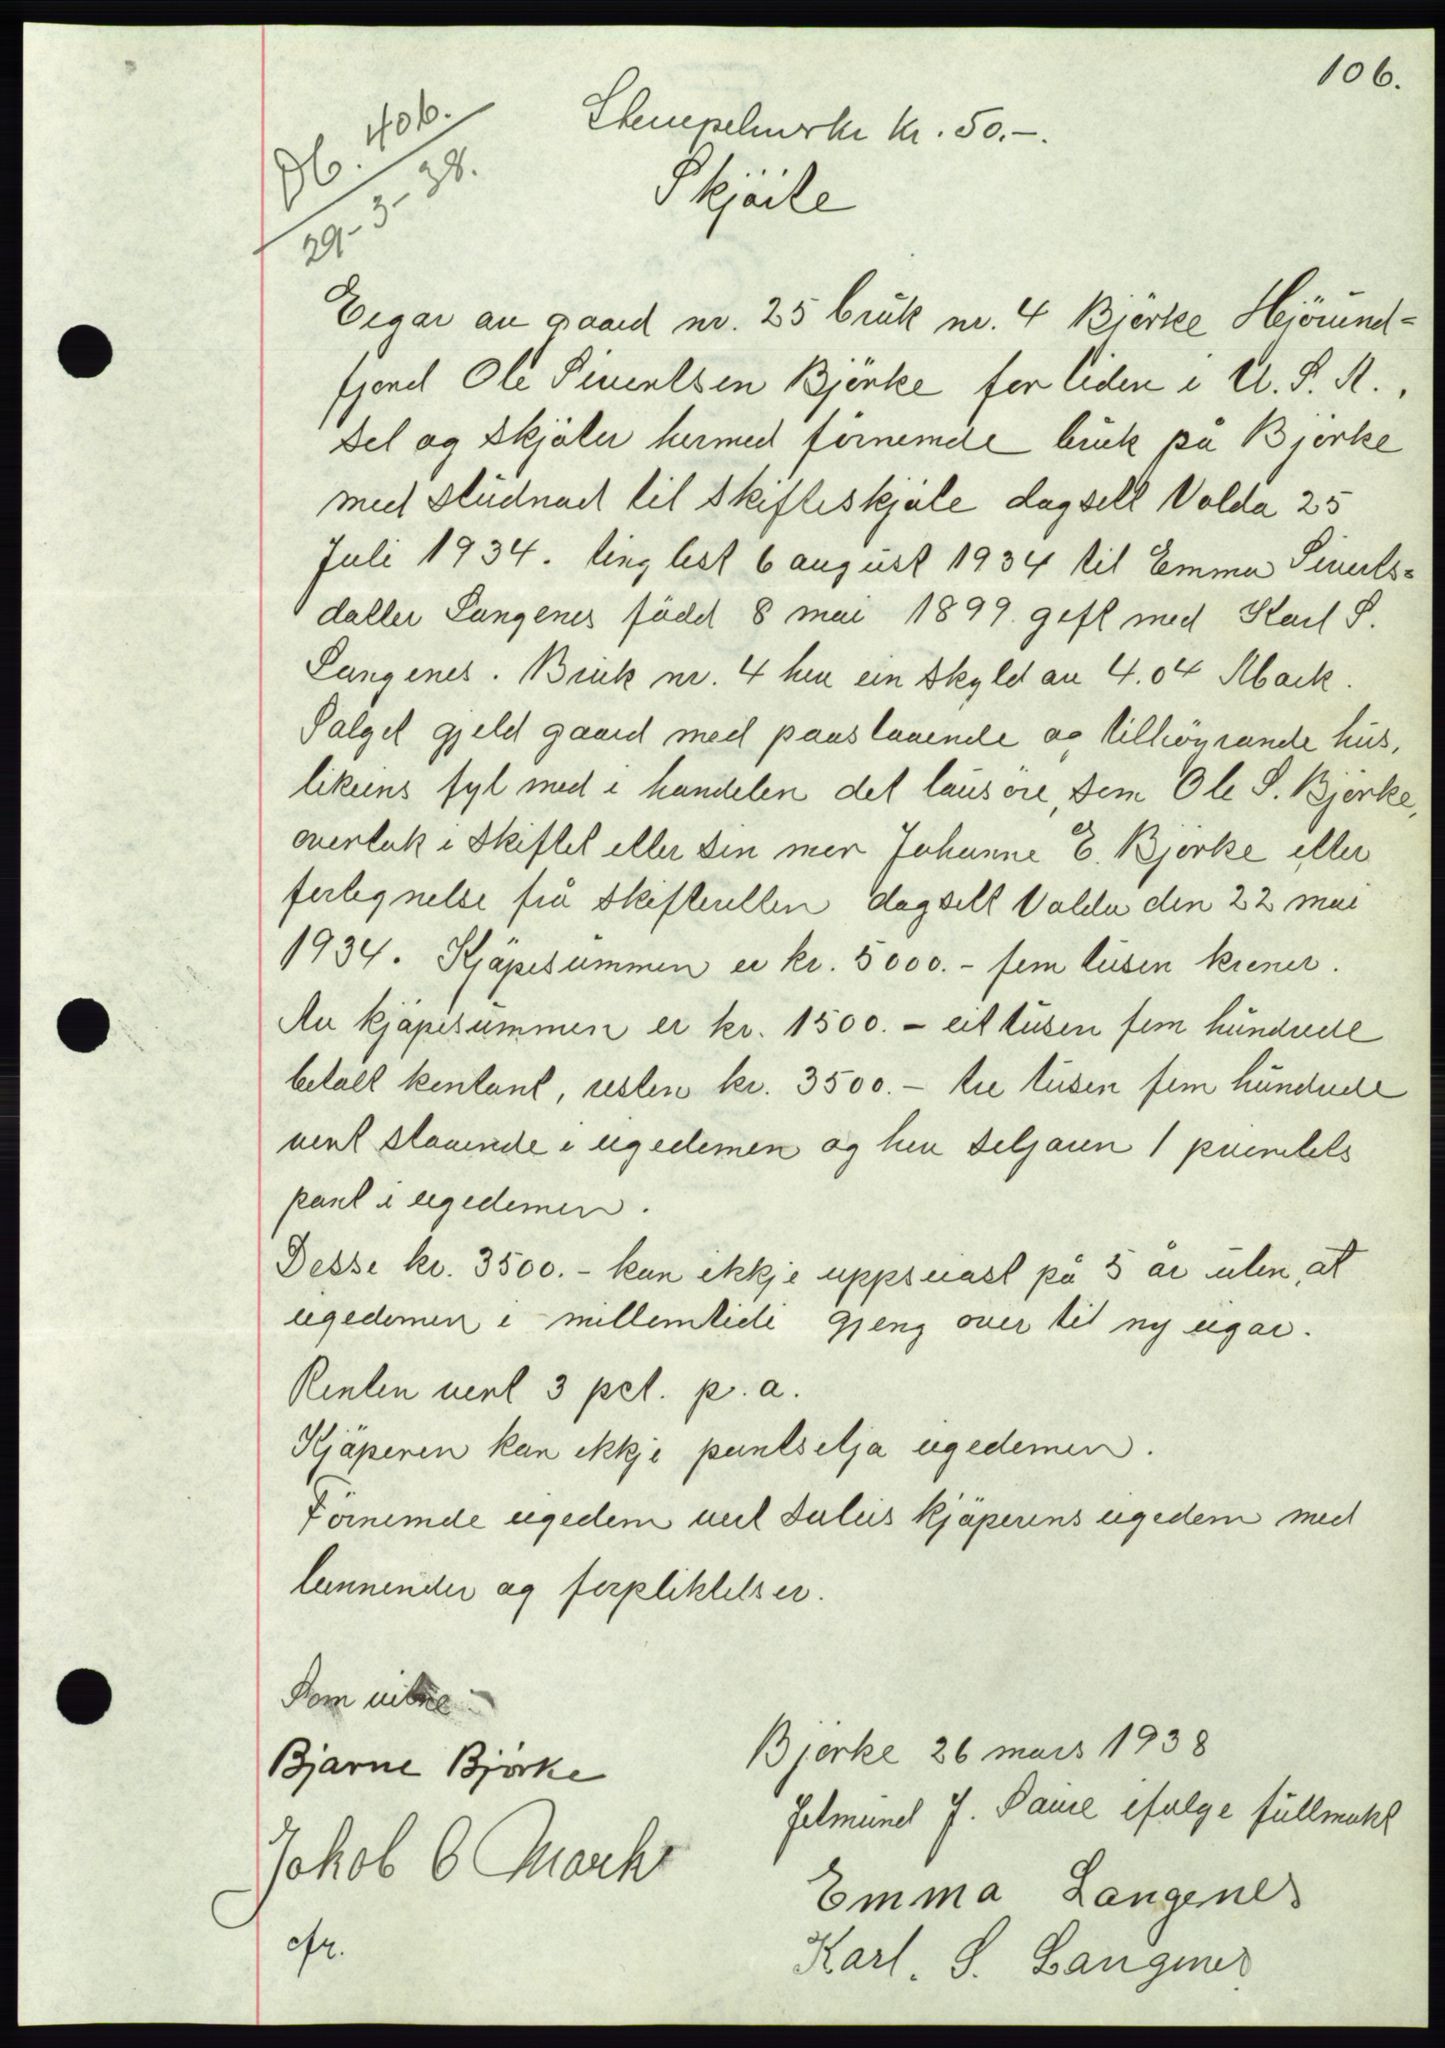 106.
Db. 406.
29-3-38.
Stempelmerke kr. 50.-.
Skjöite
Eigar av gaard nr. 25 bruk nr. 4 Björke Hjörund=
fjord Ole Sivertsen Björke for tiden i U.S.A.,
sel og skjöter hermed förnemde bruk på Björke
med studnad til skifteskjöte dagsett Volda 25
Juli 1934. tinglest 6 august 1934 til Emma Siverts=
datter Langenes född 8 mai 1899. gift med Karl S.
Langenes. Bruk nr. 4 hev ein skyld av 4.04 Mark.
Salget gjeld gaard med paastaaende og tilhöyrande hus,
likeeins fyl med i handelen det lausöre, som Ole S. Björke,
overtok i skiftet etter sin mor Johanne E. Björke etter
fortegnelse frå skifteretten dagsett Volda den 22 mai
1934. Kjöpesummen er kr. 5000.- fem tusen kroner.
Av kjöpesummen er kr. 1500.- eit tusen fem hundrede
betalt kontant, resten kr. 3500.- tre tusen fem hundrede
vert staaende i eigedomen og hev seljaren 1 prioritets
pant i eigedomen.
Desse kr. 3500.- kan ikkje uppseiast på 5 år uten, at
eigedomen i millemtidi gjeng over til ny eigar.
Renten vert 3 pct. p.a.
Kjöperen kan ikkje pantsetja eigedomen.
Förnemde eigedom vert saleis kjöperens eigedom med
lunnender og forpliktelser.
Som vitne
Bjarne Björke
Jakob O Mark
cfr.
Björke 26 mars 1938
J. Saure ifölge fullmakt
Emma Langenes
Karl. S. Langenes